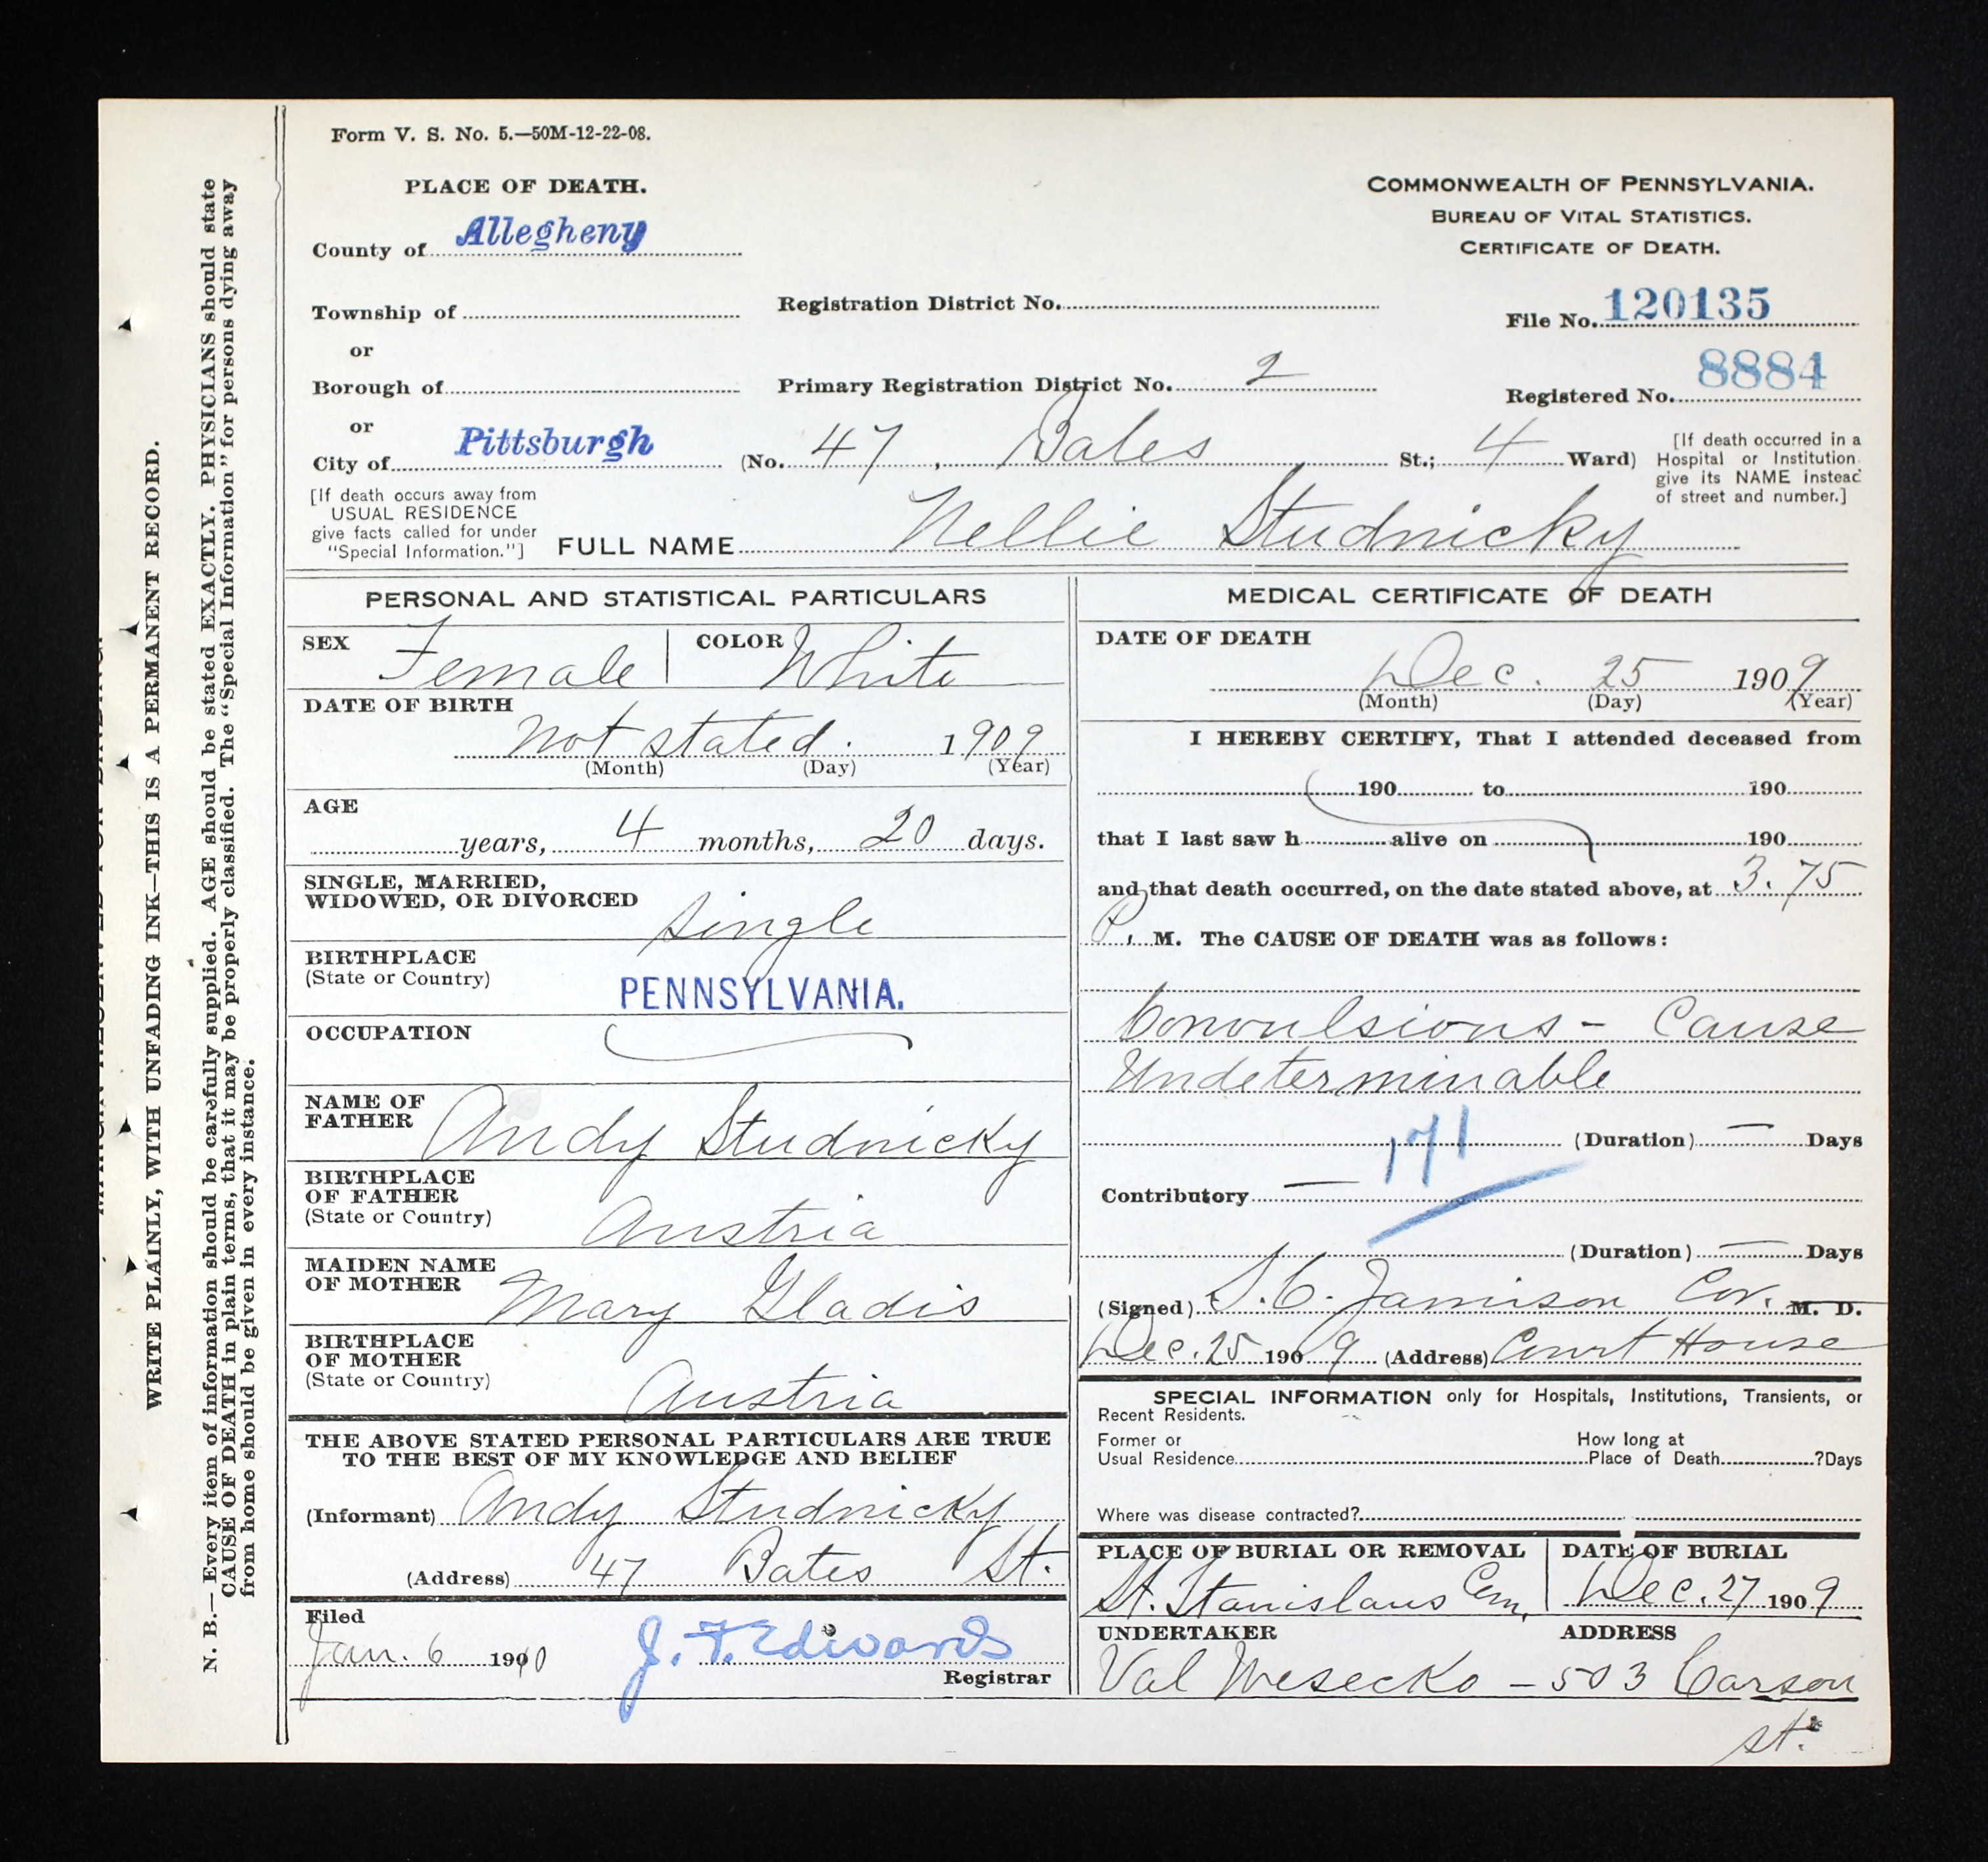 Form V. S. No. 5.—50M-12-22-08.
PLACE OF DEATH.
County of Allegheny
Township of
or
Borough of
or
City of Pittsburgh
[If death occurs away from
USUAL RESIDENCE
give facts called for under
"Special Information."]
COMMONWEALTH OF PENNSYLVANIA.
BUREAU OF VITAL STATISTICS.
CERTIFICATE OF DEATH.
Registration District No.
File No. 120135
Primary Registration District No. 2
Registered No. 8884
(No. 47, Bates St.; 4 Ward)
[If death occurred in a
Hospital or Institution
give its NAME instead
of street and number.]
FULL NAME Nellie Studnicky
PERSONAL AND STATISTICAL PARTICULARS
SEX Female COLOR White
DATE OF BIRTH
not stated. 1909
(Month) (Day) (Year)
AGE
years, 4 months, 20 days.
SINGLE, MARRIED,
WIDOWED, OR DIVORCED
single
BIRTHPLACE
(State or Country)
PENNSYLVANIA.
OCCUPATION
NAME OF
FATHER
Andy Studnicky
BIRTHPLACE
OF FATHER
(State or Country)
Austria
MAIDEN NAME
OF MOTHER
Mary Gladis
BIRTHPLACE
OF MOTHER
(State or Country)
Austria
THE ABOVE STATED PERSONAL PARTICULARS ARE TRUE
TO THE BEST OF MY KNOWLEDGE AND BELIEF
(Informant) Andy Studnicky
(Address) 47 Bates St.
Filed
Jan. 6 1910 J. F. Edwards
Registrar
MEDICAL CERTIFICATE OF DEATH
DATE OF DEATH
Dec. 25 1909
(Month) (Day) (Year)
I HEREBY CERTIFY, That I attended deceased from
190 to 190
that I last saw h alive on 190
and that death occurred, on the date stated above, at 3.75
P. M. The CAUSE OF DEATH was as follows:
Convulsions - Cause
Undeterminable
171 (Duration) — Days
Contributory —
(Duration) — Days
(Signed) J. C. Jamison Cor. M. D.
Dec. 25 1909 (Address) Court House
SPECIAL INFORMATION only for Hospitals, Institutions, Transients, or
Recent Residents.
Former or
Usual Residence
How long at
Place of Death ?Days
Where was disease contracted?
PLACE OF BURIAL OR REMOVAL
St. Stanislaus Cem.
DATE OF BURIAL
Dec. 27 1909
UNDERTAKER ADDRESS
Val Wesecko - 503 Carson
st.
WRITE PLAINLY, WITH UNFADING INK—THIS IS A PERMANENT RECORD.
N. B.—Every item of information should be carefully supplied. AGE should be stated EXACTLY. PHYSICIANS should state
CAUSE OF DEATH in plain terms, that it may be properly classified. The "Special Information" for persons dying away
from home should be given in every instance.